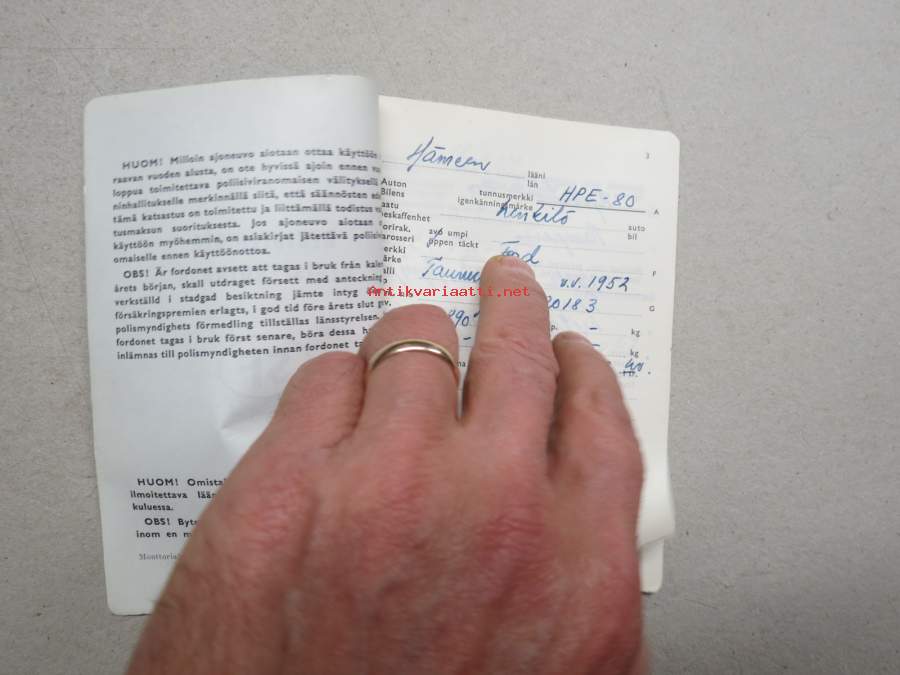 HUOM! Milloin ajoneuvo aiotaan ottaa käyttöön
raavan vuoden alusta, on ote hyvissä ajoin ennen vu
loppua toimitettava poliisiviranomaisen välityksellä
ninhallitukselle merkinnällä siitä, että säännösten ed
tämä katsastus on toimitettu ja liittämällä todistus v
tusmaksun suorituksesta. Jos ajoneuvo aiotaan
käyttöön myöhemmin, on asiakirjat jätettävä poliisiv
omaiselle ennen käyttöönottoa.
OBS! Är fordonet avsett att tagas i bruk från kale
årets början, skall utdraget försett med anteckning
verkställd i stadgad besiktning jämte intyg
försäkringspremien erlagts, i god tid före årets slut g
polismyndighets förmedling tillställas länsstyrelsen.
fordonet tagas i bruk först senare, böra dessa ha
inlämnas till polismyndigheten innan fordonet ta
HUOM! Omistaj
ilmoitettava lään
kuluessa.
OBS! Byte
inom en m
Monttoria
3
Hämeen
lääni
län
Auton
Bilens
tunnusmerkki
igenkänningsmärke
HPE-80
A
aatu
beskaffenhet
Henkilö
auto
bil
orirak.
arosseri
avo umpi
öppen täckt
erkki
ärke
Ford
F
alli
Taunus
v.v. 1952
Antikvariaatti.net
20183
G
90
p.
-
kg
-
-
kg
40.